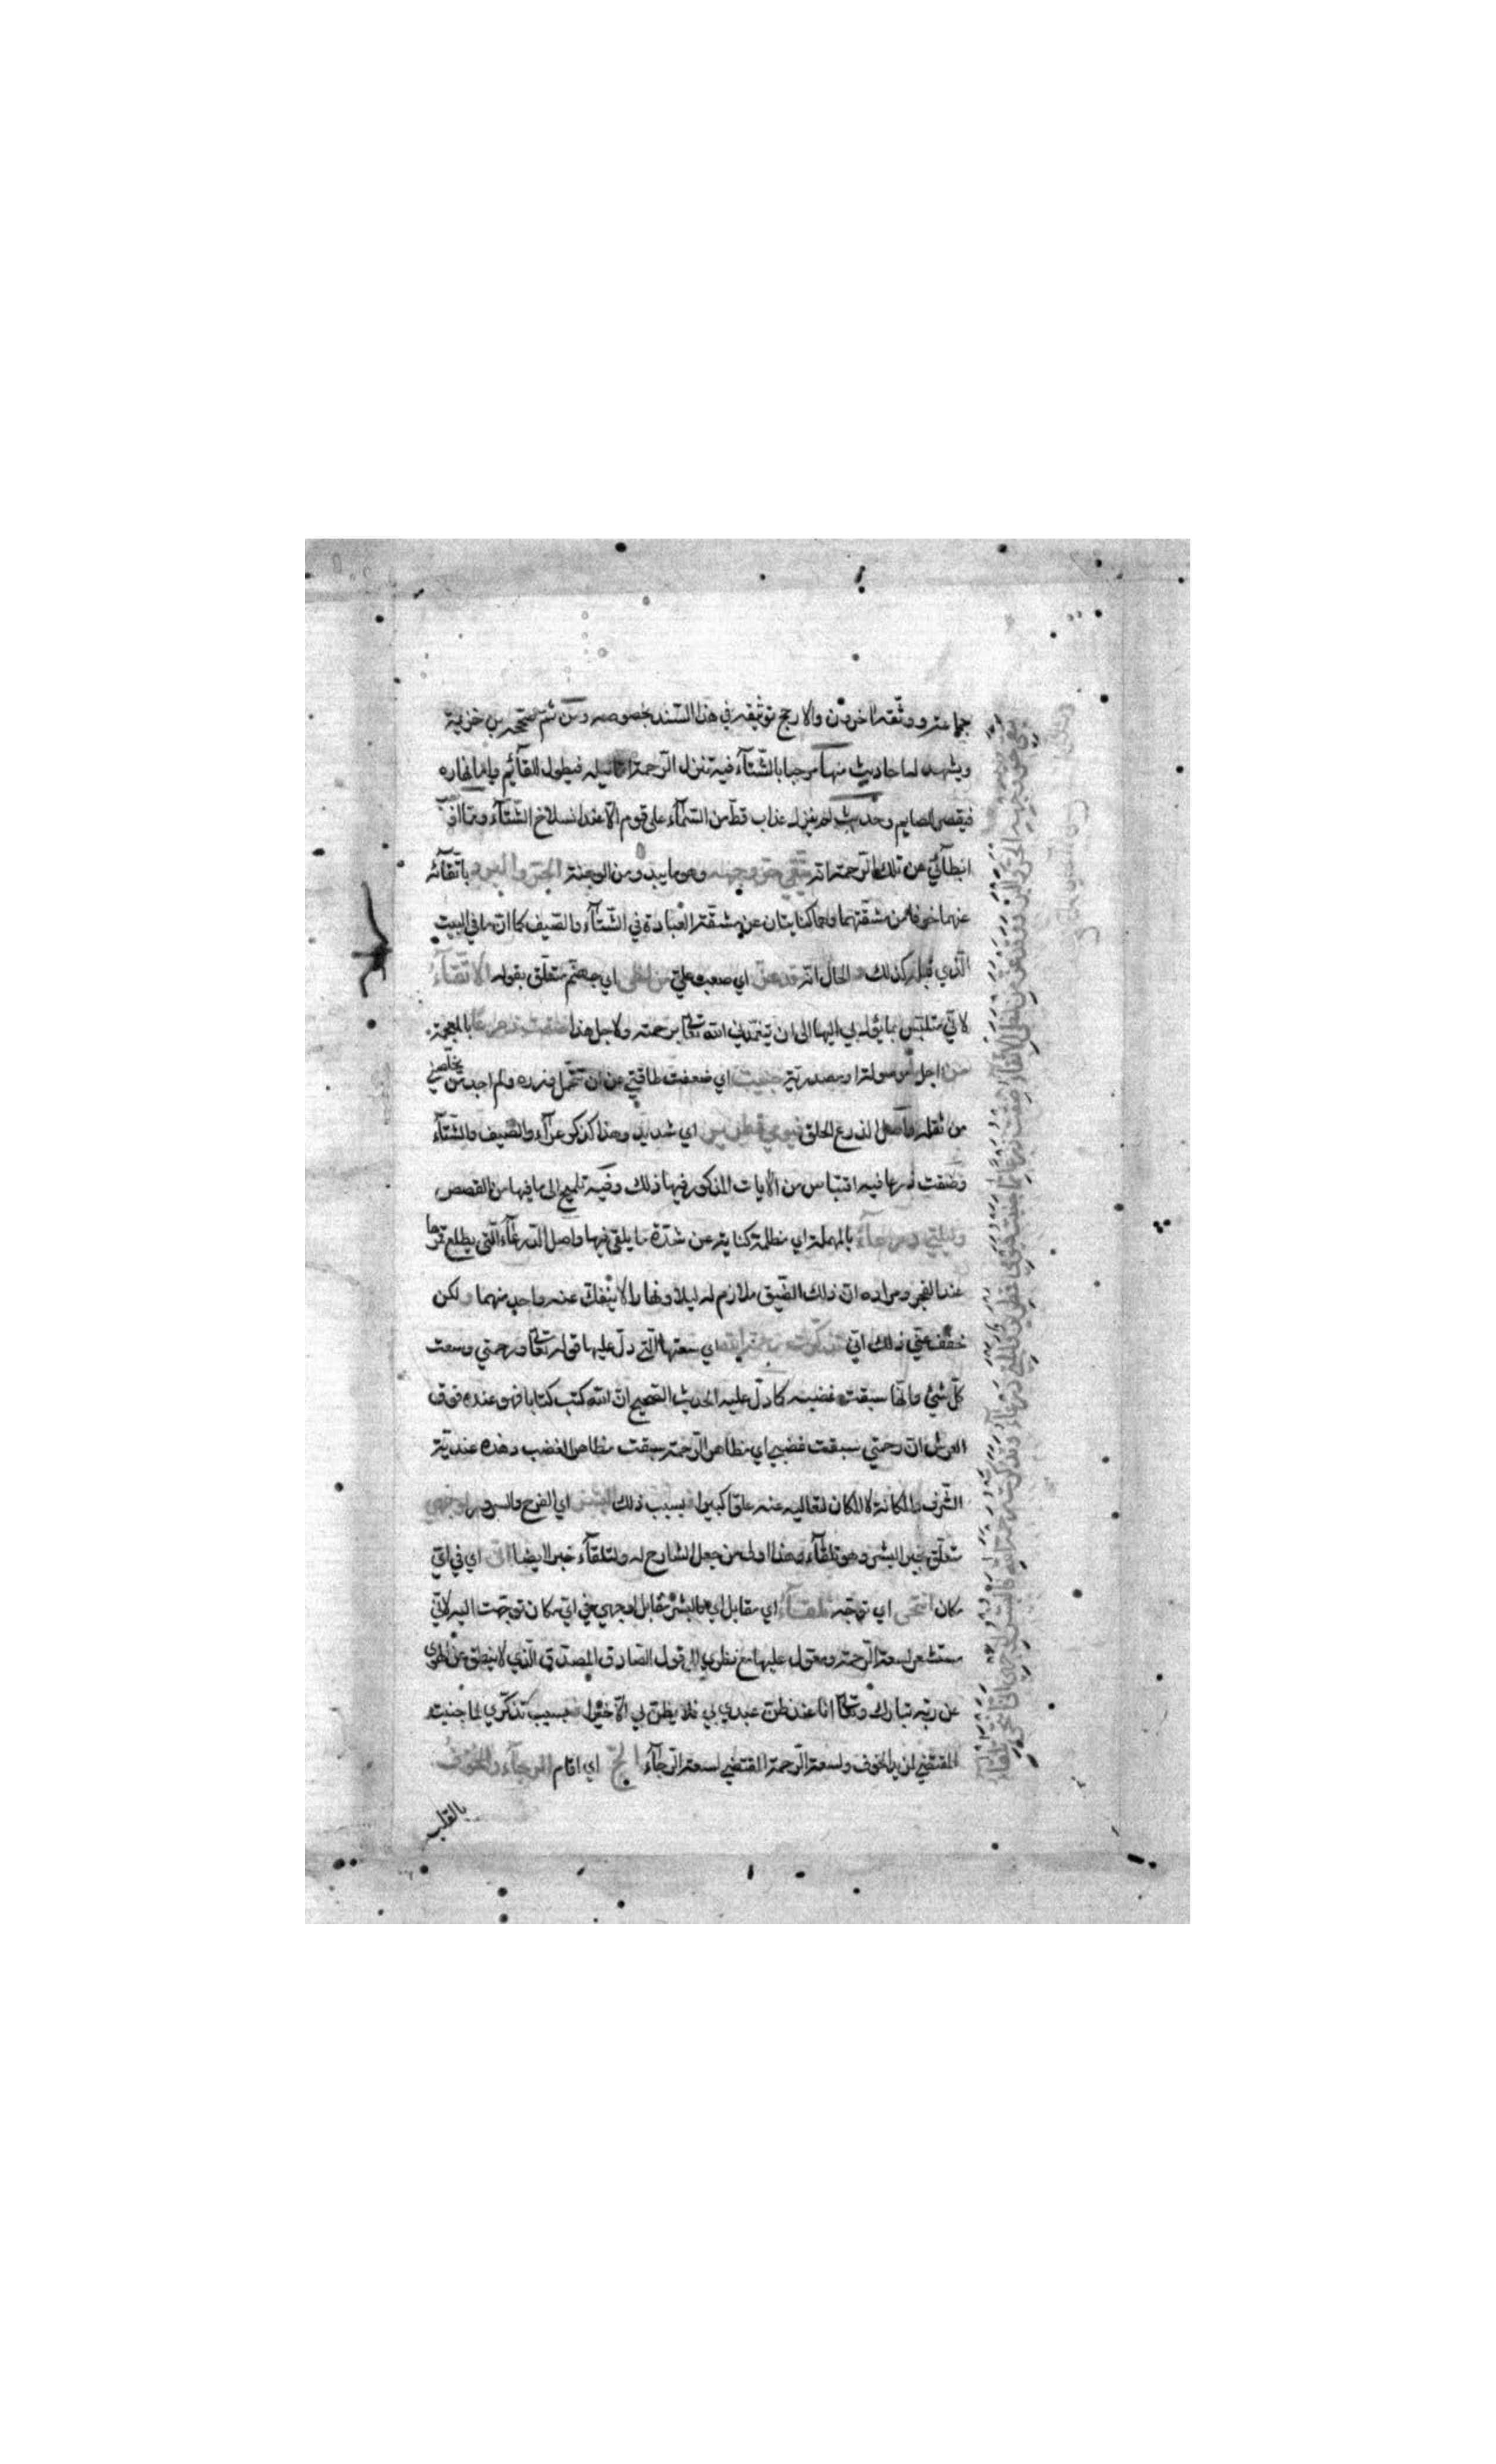 جماعة ووثقه اخرون والارجح توثيقه في هذا السند بخصوصه ومن ثم صححه بن خزيمة
ويشهد لها حاديث منها مرحبا بالشتآء فيه تنزل الرحمة اما ليله فيطول للقآئم واما نهاره
فيقصر للصايم وحديث لم ينزل عذاب قط من السمآء على قوم الا عند انسلاخ الشتآء
ابطآئي عن تلك الرحمة انه يتقي حر وجهه وهو ما يبدو من الوجنة الحر والبرد باتقآئه
عنهما خوفا من مشقتهما وهما كنايتان عن مشقة العبادة في الشتآء والصيف كما ان ما في البيت
الذي قبله كذلك و الحال انه قد عز اي صعب علي من لظى اي جهنم متعلق بقوله الاتقآء
لاني متلبس بما يؤل بي اليها الى ان يتغمدني الله تعالى برحمته ولاجل هذا ضقت ذرعا بالمعجمة
من اجل موصولة او مصدرية جنيت اي ضعفت طاقتي عن ان تتحمل وزره ولم اجد من يخلصني
من ثقله واصل الذرع الخلق فيومي قمطرير اي شديد وهذا كذكر عرآء والصيف والشتآء
وضقت ذرعا فيه اقتباس من الايات المذكور فيها ذلك وفيه تلميح الى ما فيها من القصص
وليلتي درعآء بالمهملة اي مظلمة كناية عن شدة ما يلقى فيها واصل الدرعآء التي يطلع قمرها
عند الفجر ومراده ان ذلك الضيق ملازم له ليلا ونهارا لا ينفك عنه واحد منهما ولكن
خفف عني ذلك اني تذكرت رحمة الله اي سعتها التي دل عليها قوله تعالى ورحمتي وسعت
كل شيء وانها سبقت غضبه كما دل عليه الحديث الصحيح ان الله كتب كتابا فهو عنده فوق
العرش ان رحمتي سبقت غضبي اي مظاهر الرحمة سبقت مظاهر الغضب وهذه عندية
الشرف والمكانة لا المكان لتعاليه عنه علوا كبيرا فبسبب ذلك البشر اي الفرح والسرور لوجهي
متعلق بخبر البشر وهو تلقآء وهذا اولى من جعل الشارح له ولتلقآء خبر الايضا انى اي في اي
مكان انتحى اي توجه تلقآء اي مقابل اي فالبشر مقابل لوجهي في اي مكان توجهت اليه لاني
مستشعر لسعة الرحمة ومعول عليها مع نظري الى قول الصادق المصدوق الذي لا ينطق عن الهوى
عن ربه تبارك وتعالى انا عند ظن عبدي بي فلا يظن بي الا خيرا فبسبب تذكري لما جنيت
المقتضي لمزيد الخوف ولسعة الرحمة المقتضي لسعة الرجآء الح اي اقام الرجآء والخوف
بالقلب